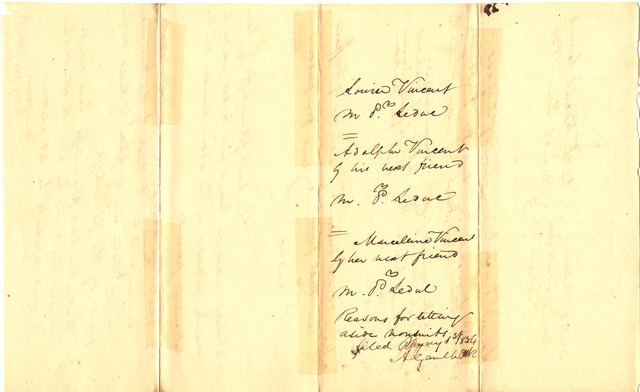 Louise Vincent
M. D. Leduc
=
Adolphe Vincent
by his next friend
M. P. Leduc
=
Marceline Vincen
by her next friend
M. P. Leduc
Reasons for setting
aside nonsuits
filed 1834
A Gamble